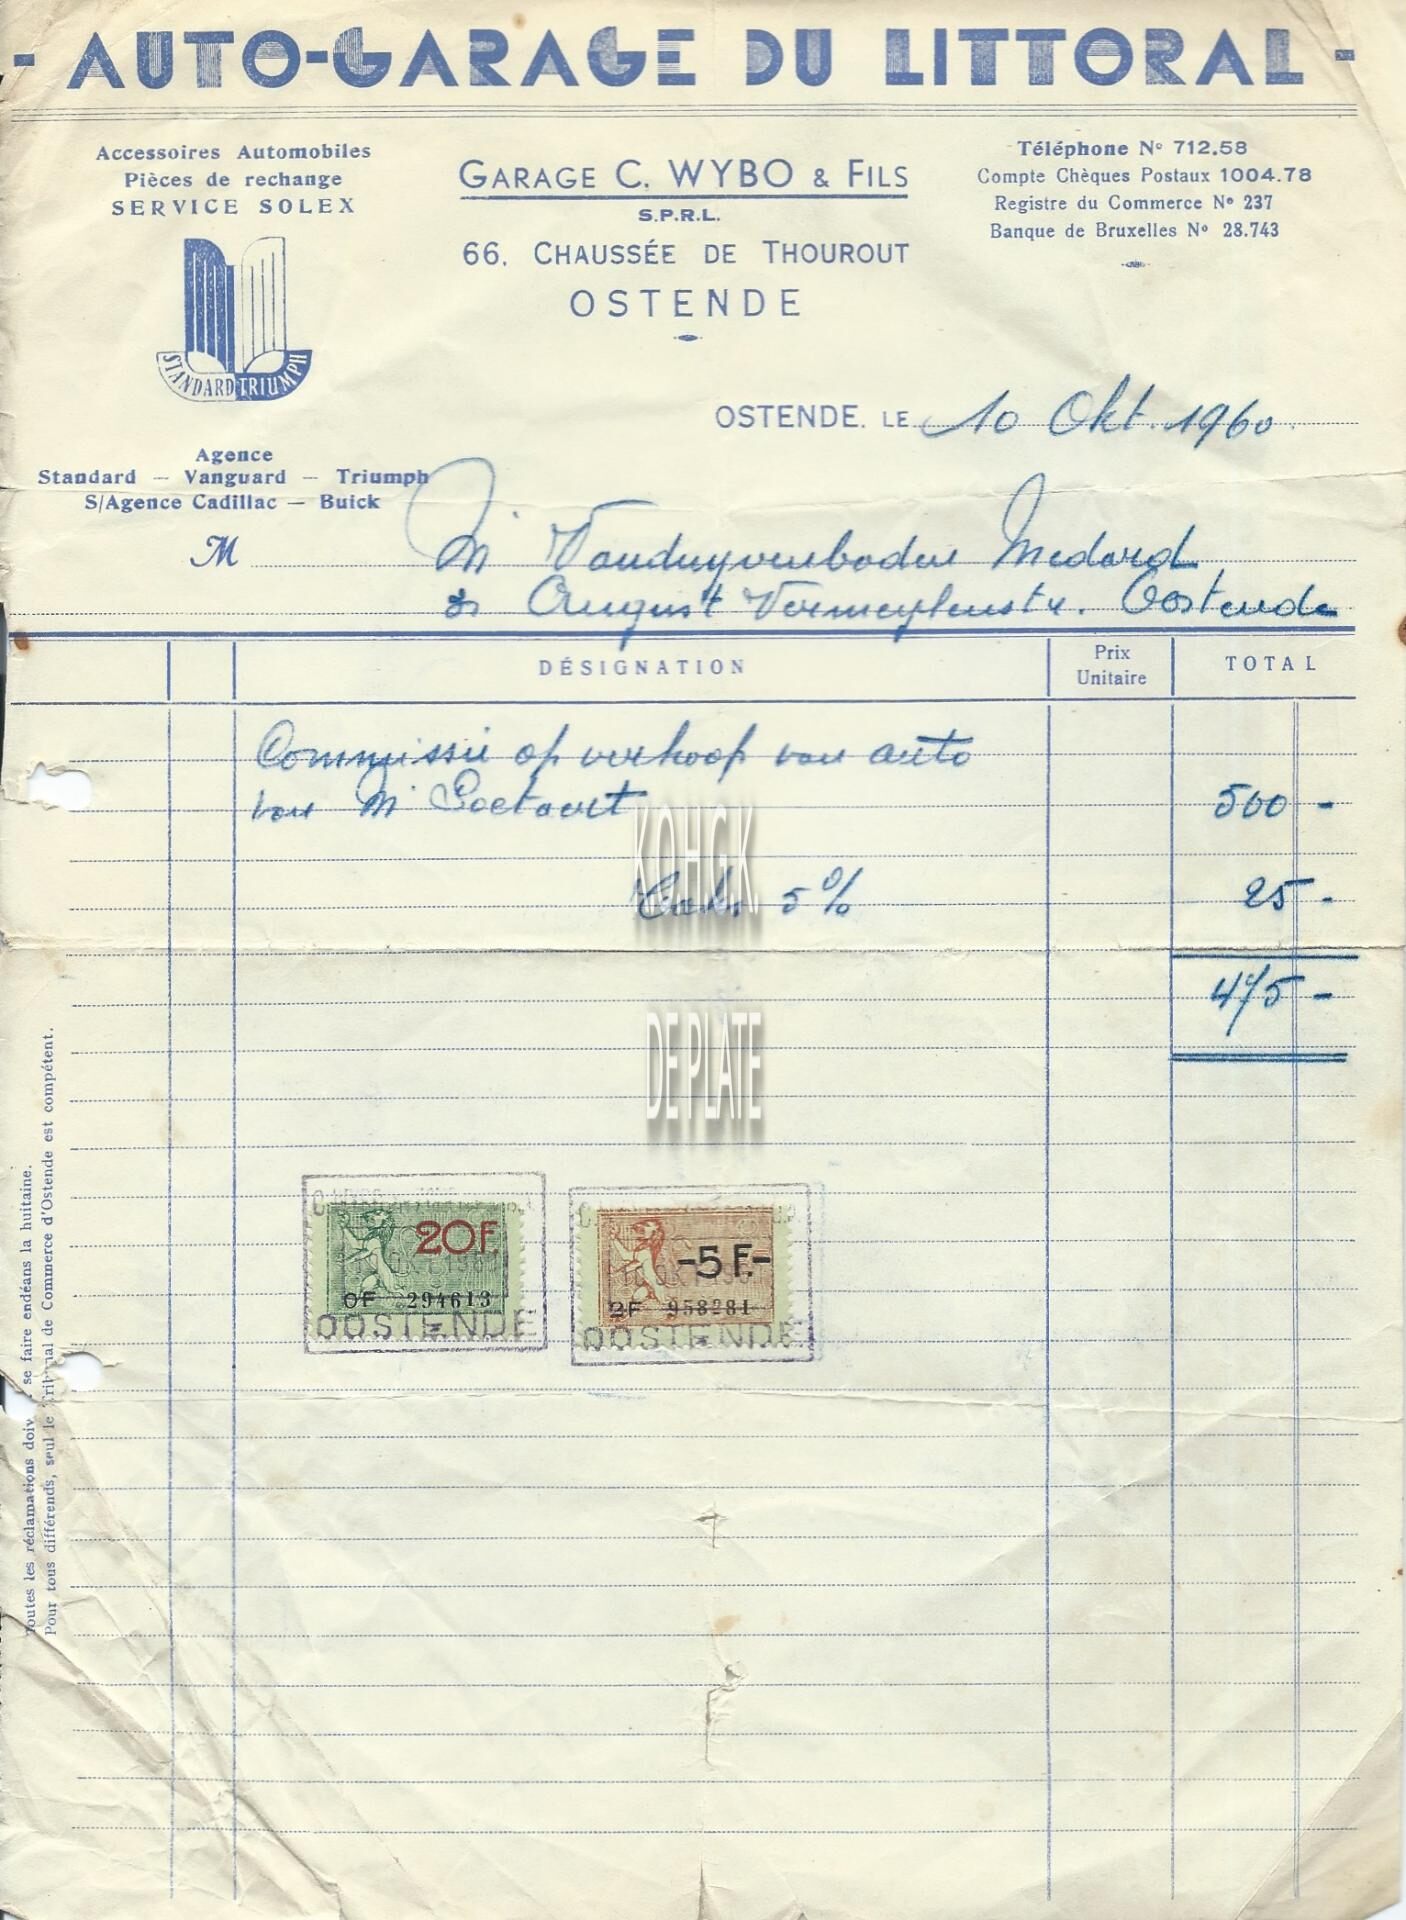 - AUTO-GARAGE DU LITTORAL -
Accessoires Automobiles
Pièces de rechange
SERVICE SOLEX
STANDARD TRIUMPH
Agence
Standard — Vanguard — Triumph
S/Agence Cadillac — Buick
GARAGE C. WYBO & FILS
S.P.R.L.
66, CHAUSSÉE DE THOUROUT
OSTENDE
Téléphone No 712.58
Compte Chèques Postaux 1004.78
Registre du Commerce No 237
Banque de Bruxelles No 28.743
OSTENDE, LE 10 Okt. 1960
M Mr Vanduyvenboden Medard
August Vermeylenstr. Oostende
DÉSIGNATION Prix Unitaire TOTAL
Commissie op verkoop van auto
van Mr 500 -
5% 25 -
475 -
KOHGK
DE PLATE
20F.
0F 294613
OOSTENDE
-5 F.-
2F 958281
OOSTENDE
Toutes les réclamations doiv se faire endéans la huitaine.
Pour tous différends, seul le Tribunal de Commerce d'Ostende est compétent.